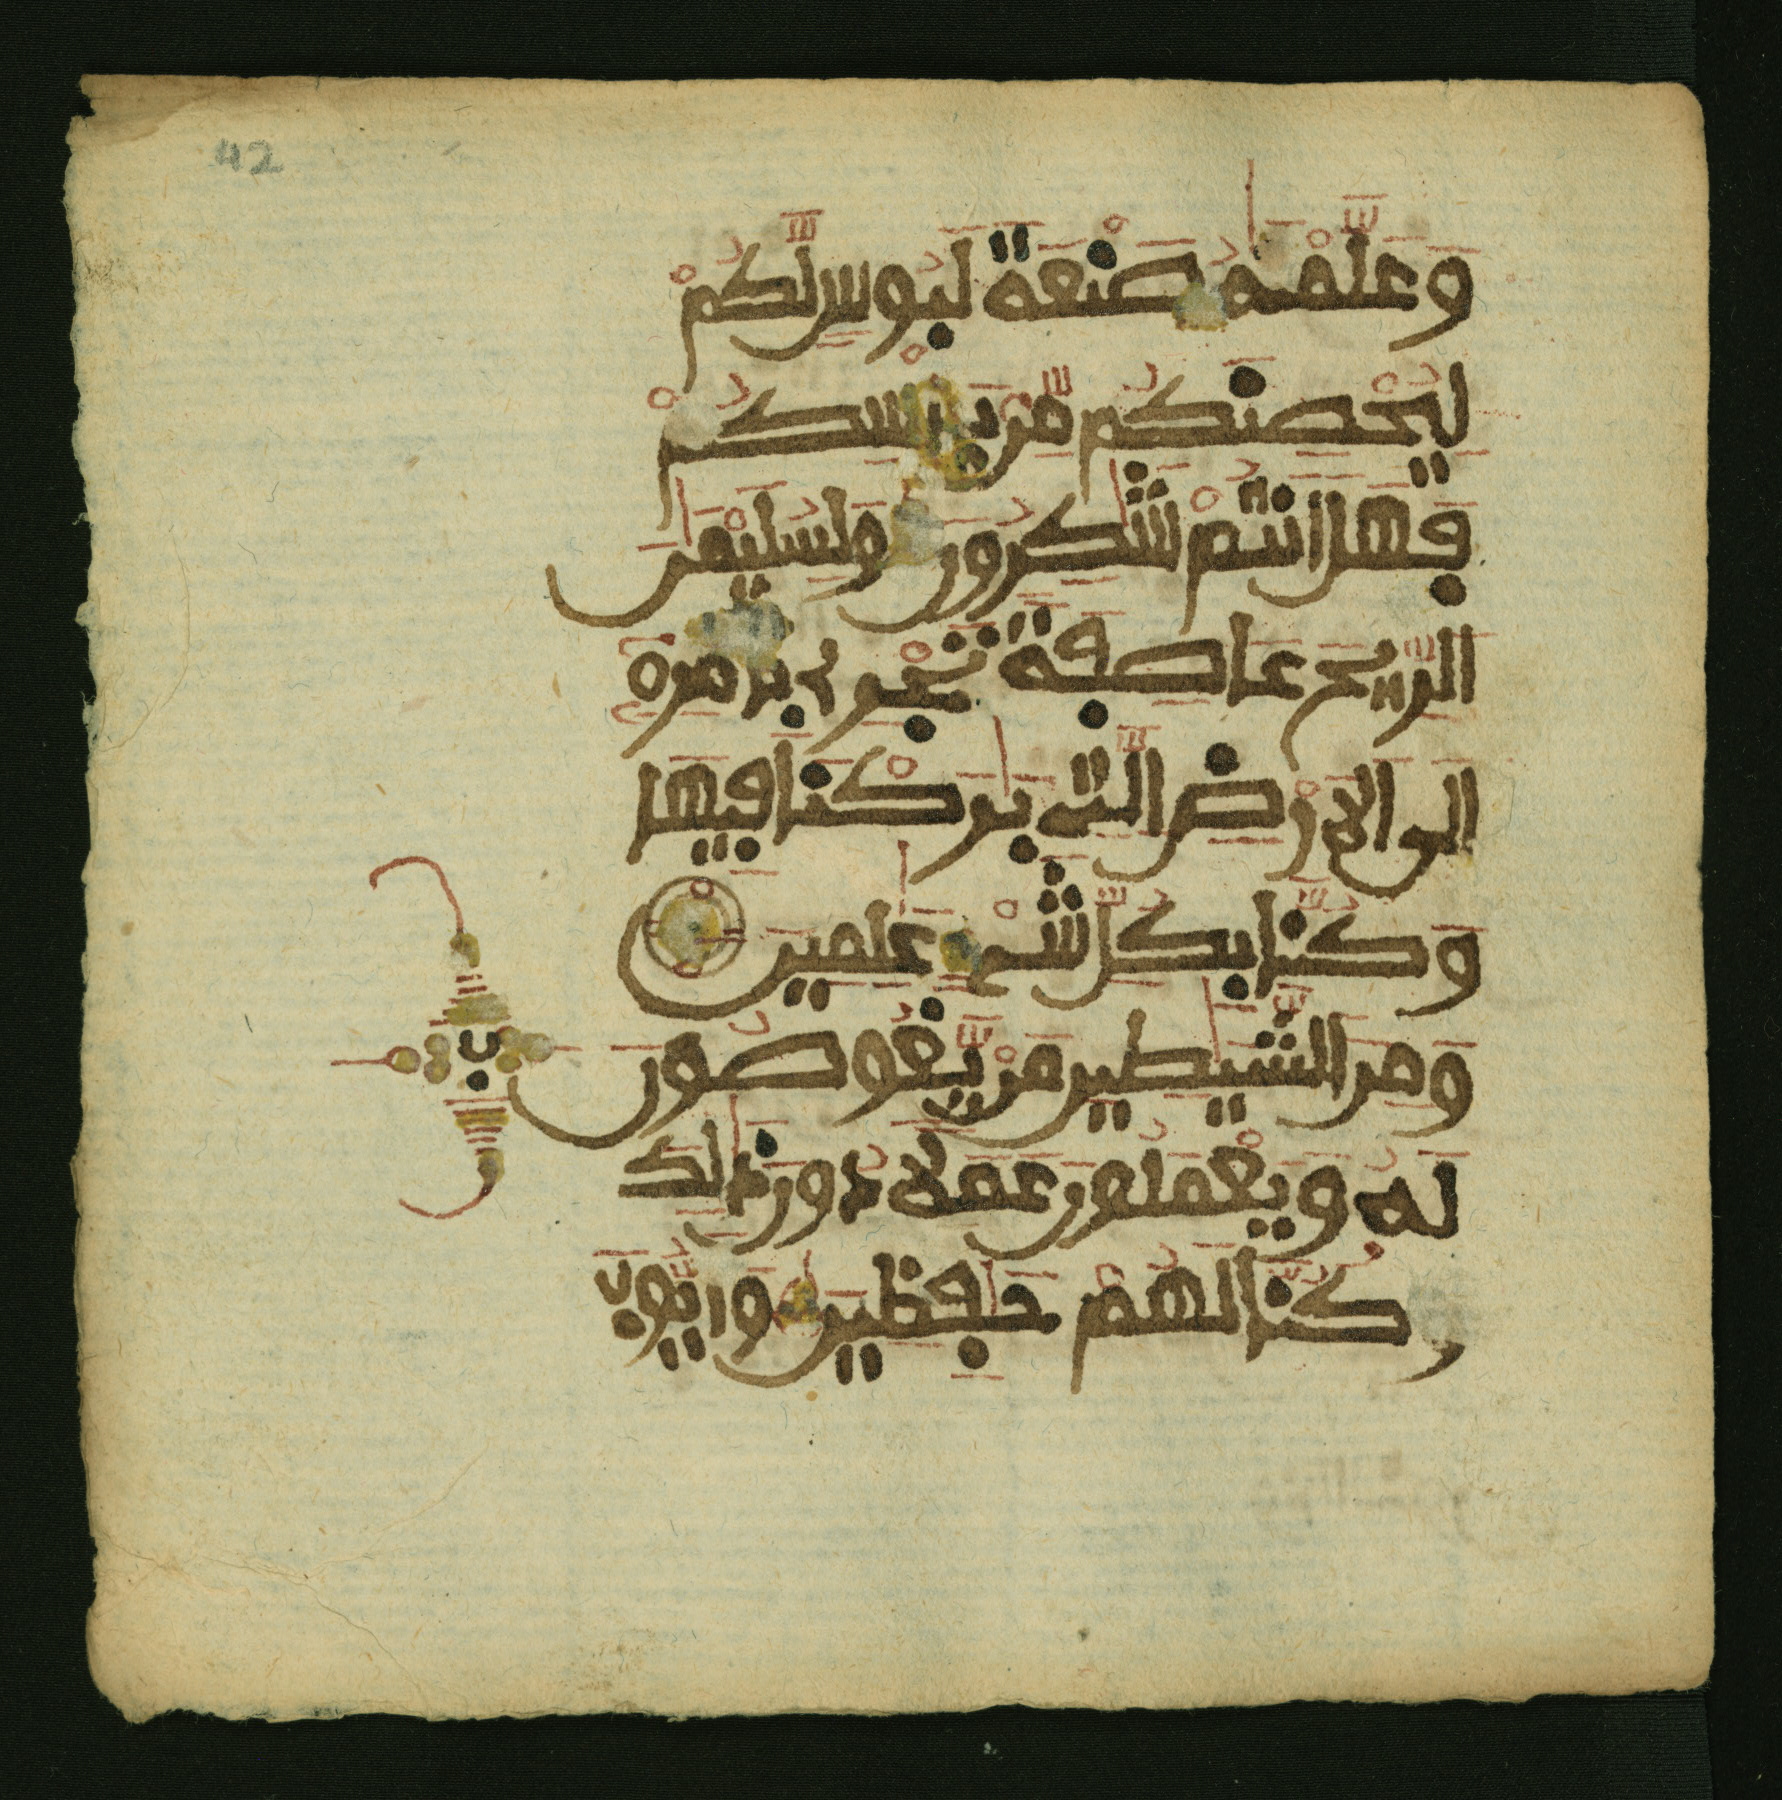 42
وَعَلَّمْنَٰهُ صَنْعَةَ لَبُوسٍ لَّكُمْ
لِيُحْصِنَكُم مِّنۢ بَأْسِكُمْ
فَهَلَ اَنتُمْ شَٰكِرُونَ وَلِسُلَيْمَٰنَ
اَلرِّيحَ عَاصِفَةً تَجْرِي بِأَمْرِهِ
إِلَى اَلَارْضِ اِلتِي بَٰرَكْنَا فِيهَا
وَكُنَّا بِكُلِّ شَيْءٍ عَٰلِمِينَ
وَمِنَ اَلشَّيَٰطِينِ مَنْ يَّغُوصُونَ
ب
لَهُ وَيَعْمَلُونَ عَمَلًا دُونَ ذَٰلِكَ
وَكُنَّا لَهُمْ حَٰفِظِينَ وَأَيُّوبَ